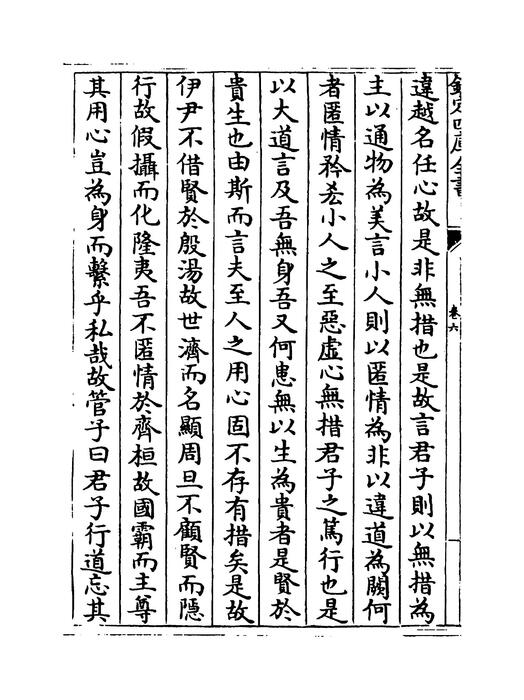 欽定四庫全書
卷六
違越名任心故是非無措也是故言君子則以無措為
主以通物為美言小人則以匿情為非以違道為闕何
者匿情矜吝小人之至惡虛心無措君子之篤行也是
以大道言及吾無身吾又何患無以生為貴者是賢於
貴生也由斯而言夫至人之用心固不存有措矣是故
伊尹不借賢於殷湯故世濟而名顯周旦不顧賢而隱
行故假攝而化隆夷吾不匿情於齊桓故國霸而主尊
其用心豈為身而繫乎私哉故管子曰君子行道忘其